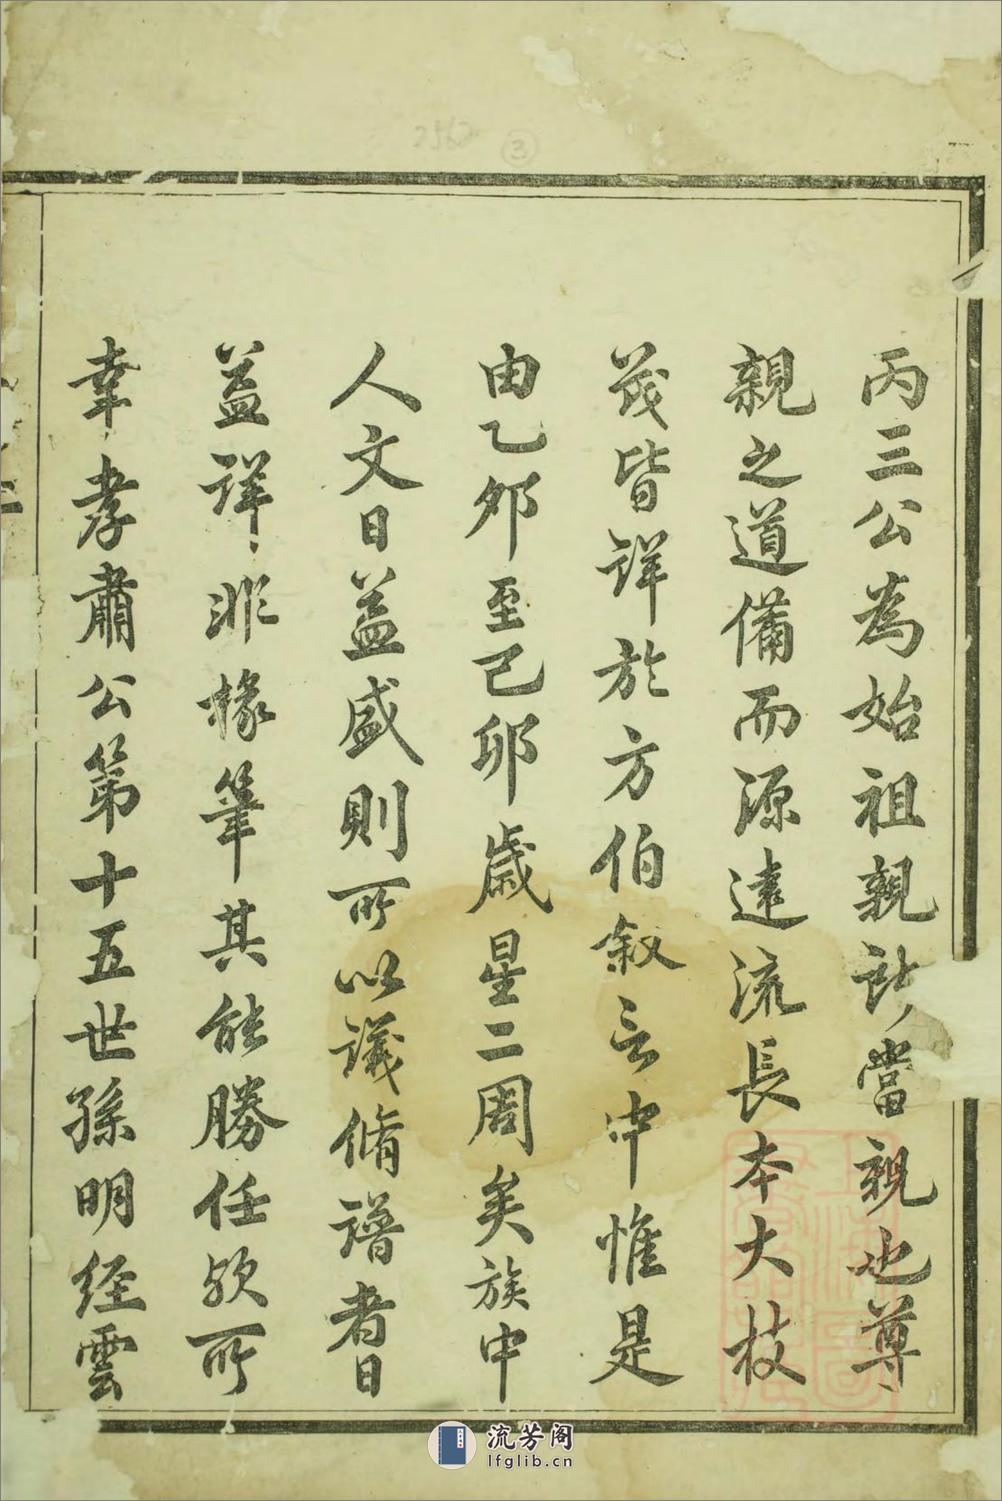 丙三公為始祖親所當親也尊〻
親之道備而源遠流長本大枝
茂皆詳於方伯叙言中惟是
由乙夘至己卯歲星二周矣族中
人文日益盛則所以議脩譜者日
益詳〻非椽筆其能勝任欤所
幸孝肅公第十五世孫明經雲
流芳阁
lfglib.cn